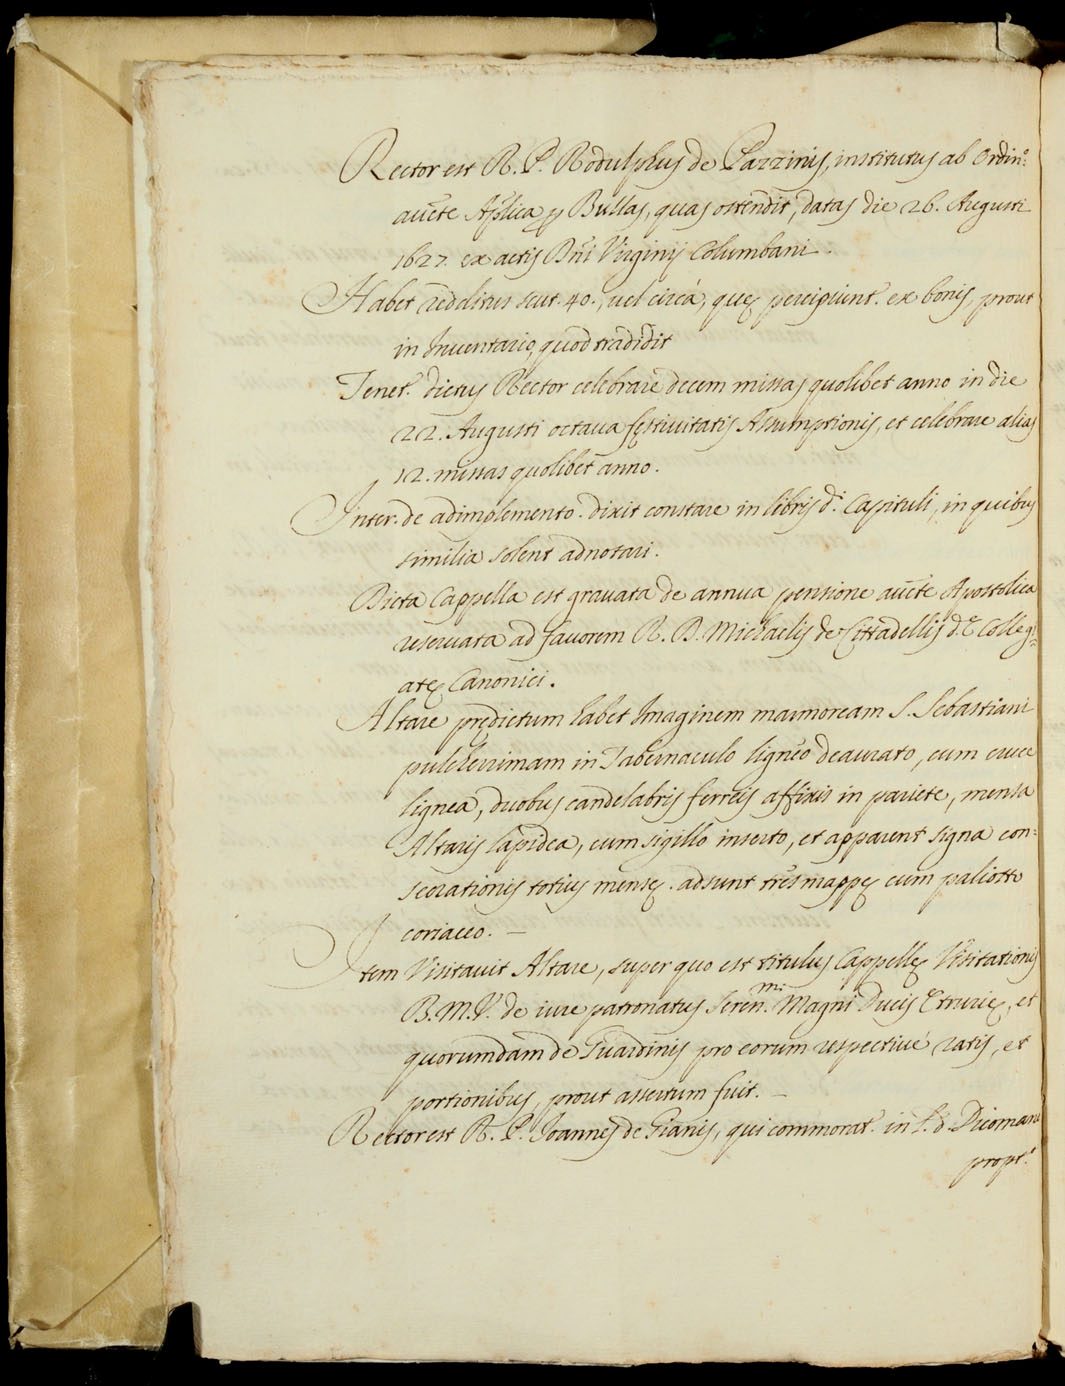 Rector est R. P. Rodulphus de Pazzinis, institutus ab Ordin.º
aucte Aplica p Bullas, quas ostendit, datas die 26. Augusti
1627. ex actis Dni Virginij Columbani.
Habet redditus scut. 40., uel circà, quę percipiunt. ex bonis, prout
in Inuentario, quod tradidit
Tenet. dictus Rector celebrare decem missas quolibet anno in die
22. Augusti octaua festiuitatis Assumptionis, et celebrare alias
12. missas quolibet anno.
Inter. de adimplemento. dixit constare in libris d.i Capituli, in quibus
similia solent adnotari.
Dicta Cappella est grauata de annua pensione aucte Apostolica
reseruata ad fauorem R. D. Michaelis de Cittadellis d.ę Colleg=
atę Canonici.
Altare prędictum habet Imaginem marmoream S. Sebastiani
pulcherrimam in Tabernaculo ligneo deaurato, cum cruce
lignea, duobus candelabris ferreis affixis in pariete, mensa
Altaris lapidea, cum sigillo inserto, et apparent signa con=
secrationis totius mensę. adsunt tres mappę cum paliotto
coriaceo. —
Item Visitauit Altare, super quo est titulus Cappellę Visitationis
B. M. V. de iure patronatus Seren.mi Magni Ducis Etrurię, et
quorumdam de Guardinis pro eorum respectiuè ratis, et
portionibus, prout assertum fuit. —
Rector est R. P. Joannes de Gianis, qui commorat. in S. d. Dicomani
propt.